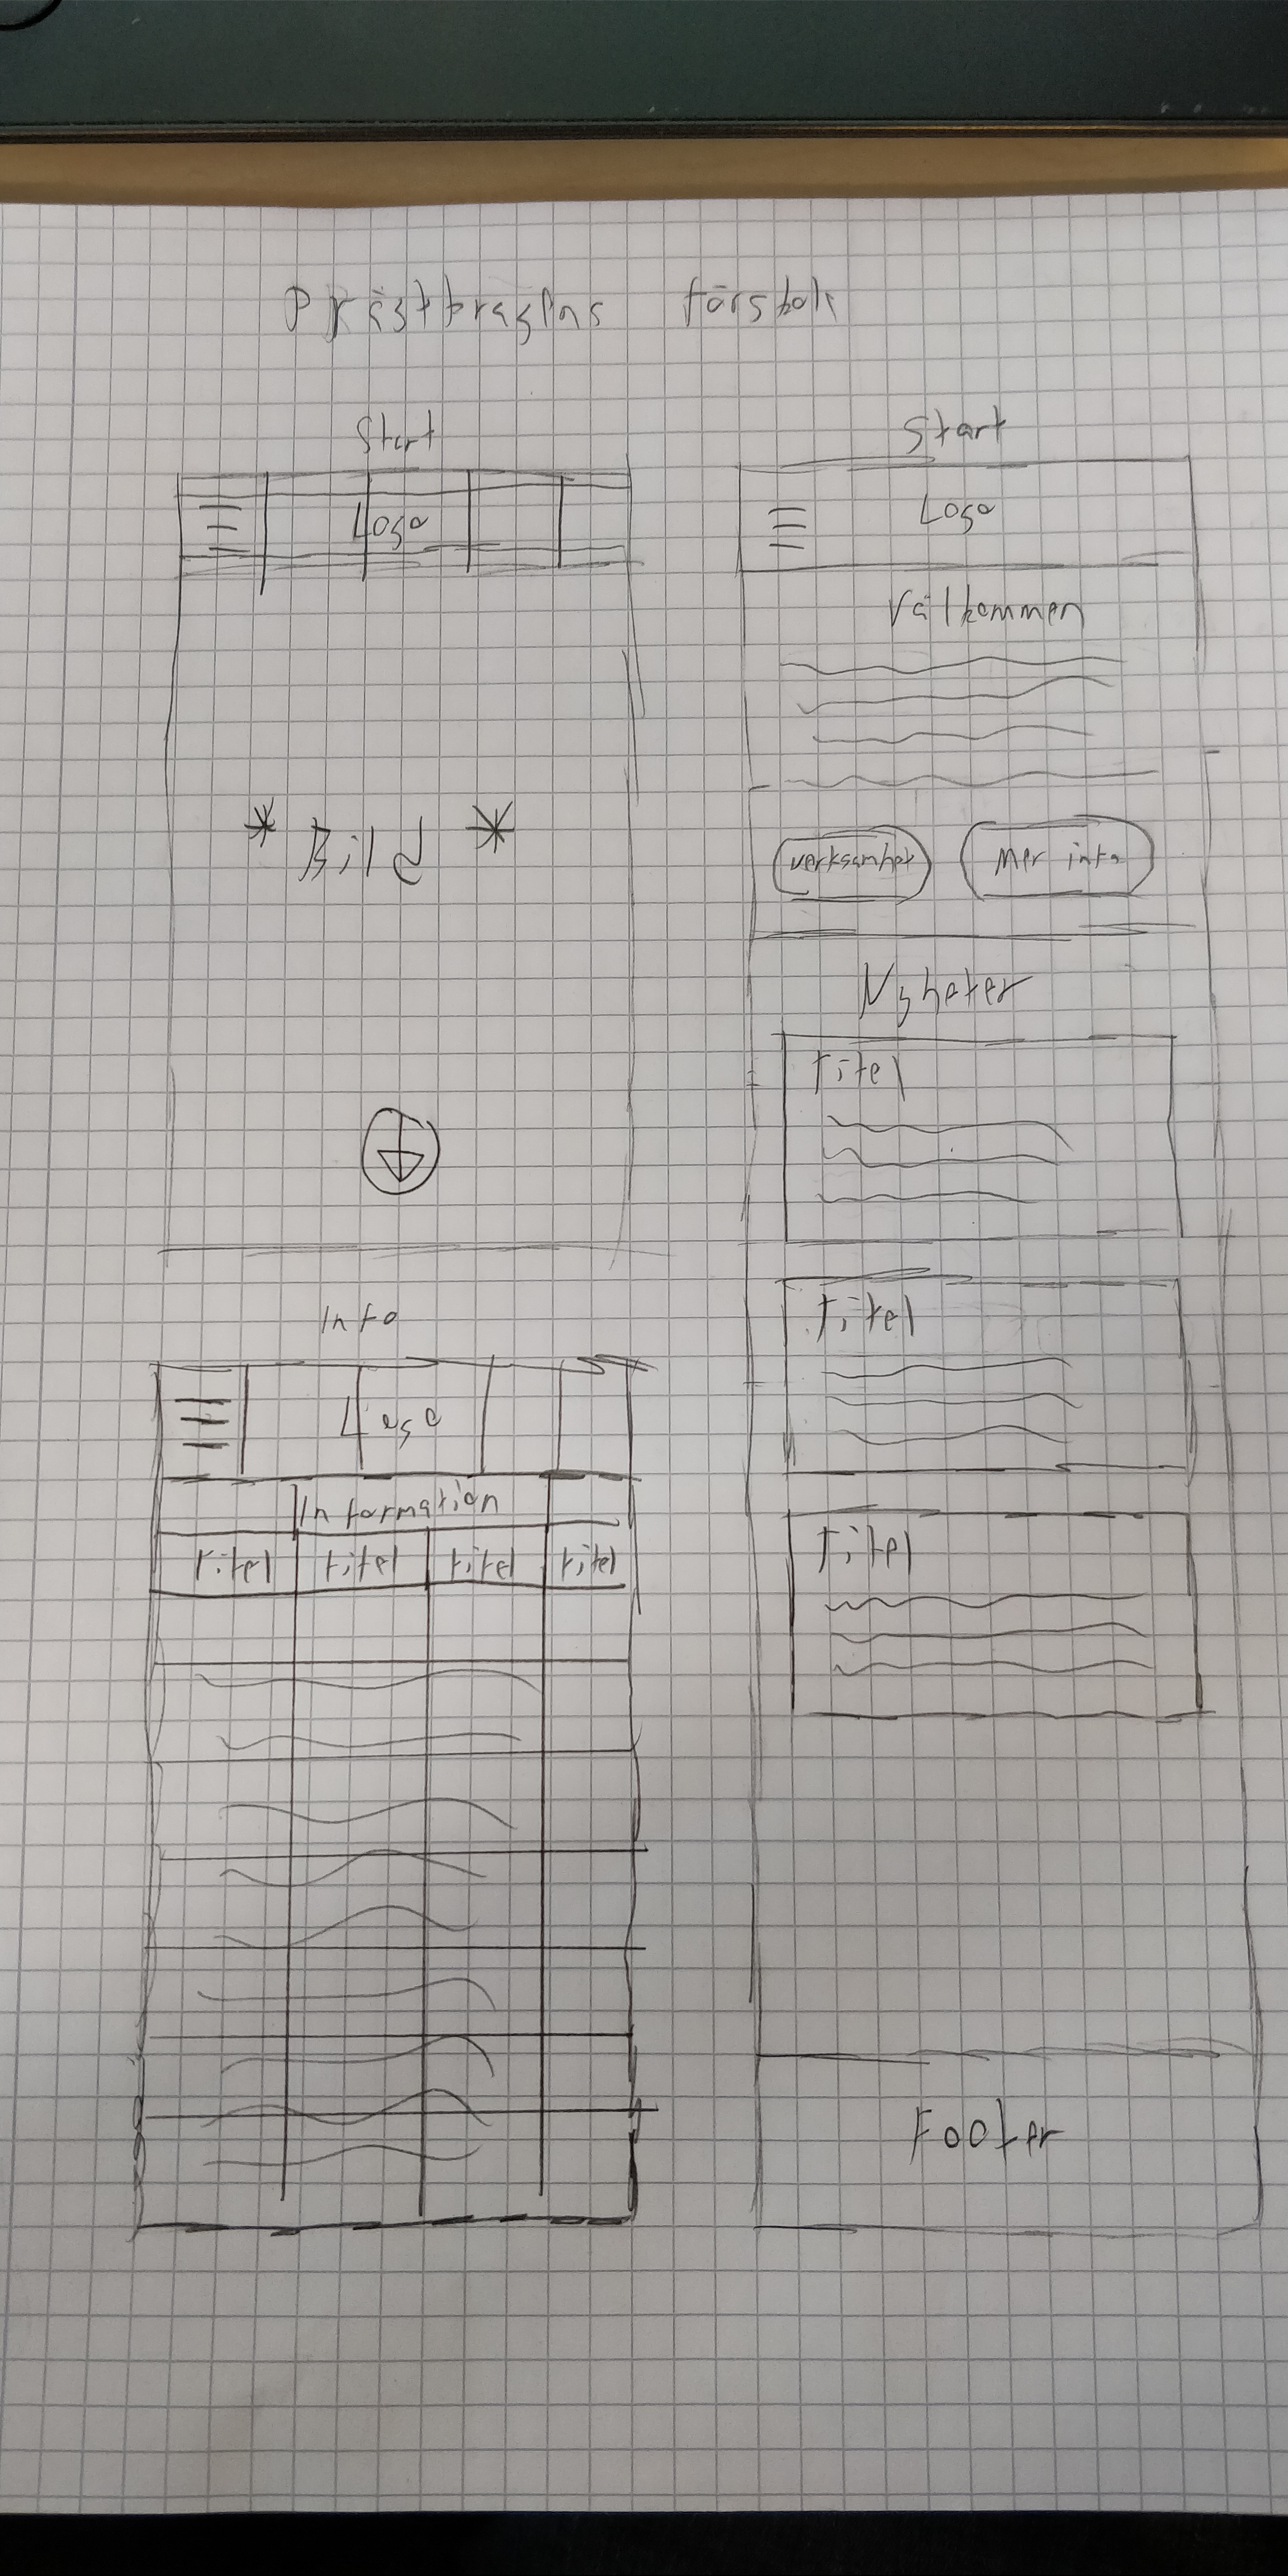 Start
Logo
* Bild *
Info
Logo
Information
titel titel titel titel
Start
Logo
Välkommen
verksamhet Mer info
Nyheter
titel
titel
titel
Footer